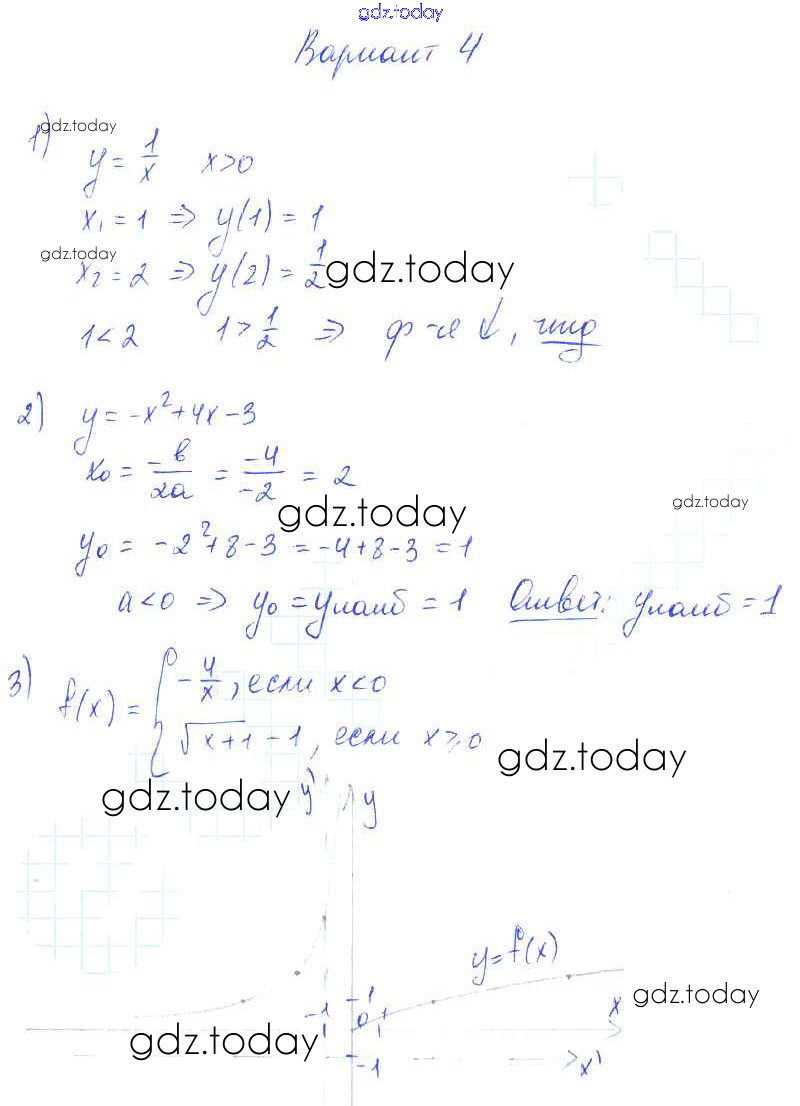 gdz.today
Вариант 4
gdz.today
1)
y = 1/x x>0
x₁ = 1 ⇒ y(1) = 1
gdz.today
x₂ = 2 ⇒ y(2) = 1/2
gdz.today
1 < 2 1 > 1/2 ⇒ ф-я ↓, чтд
2) y = -x² + 4x - 3
x₀ = -в/2a = -4/-2 = 2
gdz.today
gdz.today
y₀ = -2² + 8 - 3 = -4 + 8 - 3 = 1
a < 0 ⇒ y₀ = yнаиб = 1 Ответ: yнаиб = 1
3) f(x) = { -4/x, если x < 0
√x+1 - 1, если x ⩾ 0
gdz.today
gdz.today
y' y
y = f(x)
-1 1 0 1 x
gdz.today
gdz.today
-1 x'